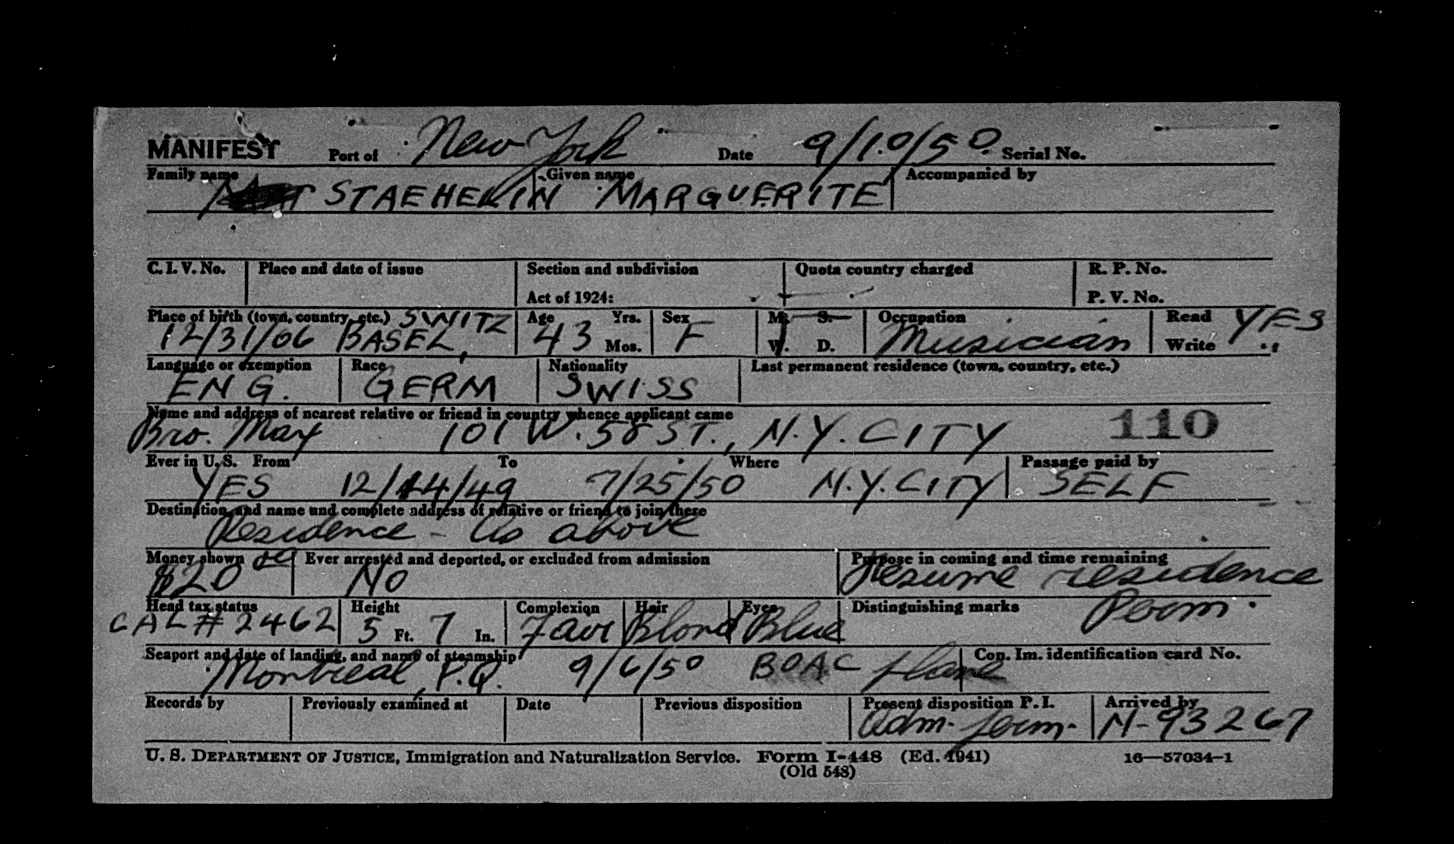 MANIFEST Port of New York Date 9/10/50 Serial No.
Family name Given name Accompanied by
STAEHELIN MARGUERITE
C. I. V. No. Place and date of issue Section and subdivision Quota country charged R. P. No.
Act of 1924: P. V. No.
Place of birth (town, country, etc.) SWITZ Age Yrs. Sex M. S. Occupation Read YES
12/31/06 BASEL, 43 Mos. F W. D. Musician Write "
Language or exemption Race Nationality Last permanent residence (town, country, etc.)
ENG. GERM SWISS
Name and address of nearest relative or friend in country whence applicant came
Bro. Max 101 W. 58 ST., N.Y. CITY 110
Ever in U. S. From To Where Passage paid by
YES 12/14/49 7/25/50 N.Y. CITY SELF
Destination, and name and complete address of relative or friend to join there
Residence - As above
Money shown Ever arrested and deported, or excluded from admission Purpose in coming and time remaining
$20 00 NO Resume residence
Head tax status Height Complexion Hair Eyes Distinguishing marks Perm.
CAL # 2462 5 Ft. 7 In. Fair Blond Blue
Seaport and date of landing, and name of steamship Con. Im. identification card No.
Montreal, P.Q. 9/6/50 BOAC plane
Records by Previously examined at Date Previous disposition Present disposition P. I. Arrived by
Adm. perm. N-93267
U. S. DEPARTMENT OF JUSTICE, Immigration and Naturalization Service. Form I-448 (Ed. 4941) 16—57034-1
(Old 548)